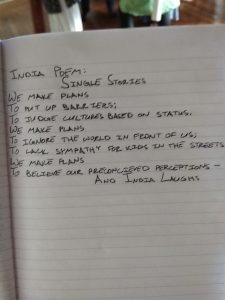 INDIA POEM:
SINGLE STORIES
WE MAKE PLANS
TO PUT UP BARRIERS;
TO JUDGE CULTURES BASED ON STATUS.
WE MAKE PLANS
TO IGNORE THE WORLD IN FRONT OF US;
TO LACK SYMPATHY FOR KIDS IN THE STREETS
WE MAKE PLANS
TO BELIEVE OUR PRECONCIEVED PERCEPTIONS –
AND INDIA LAUGHS